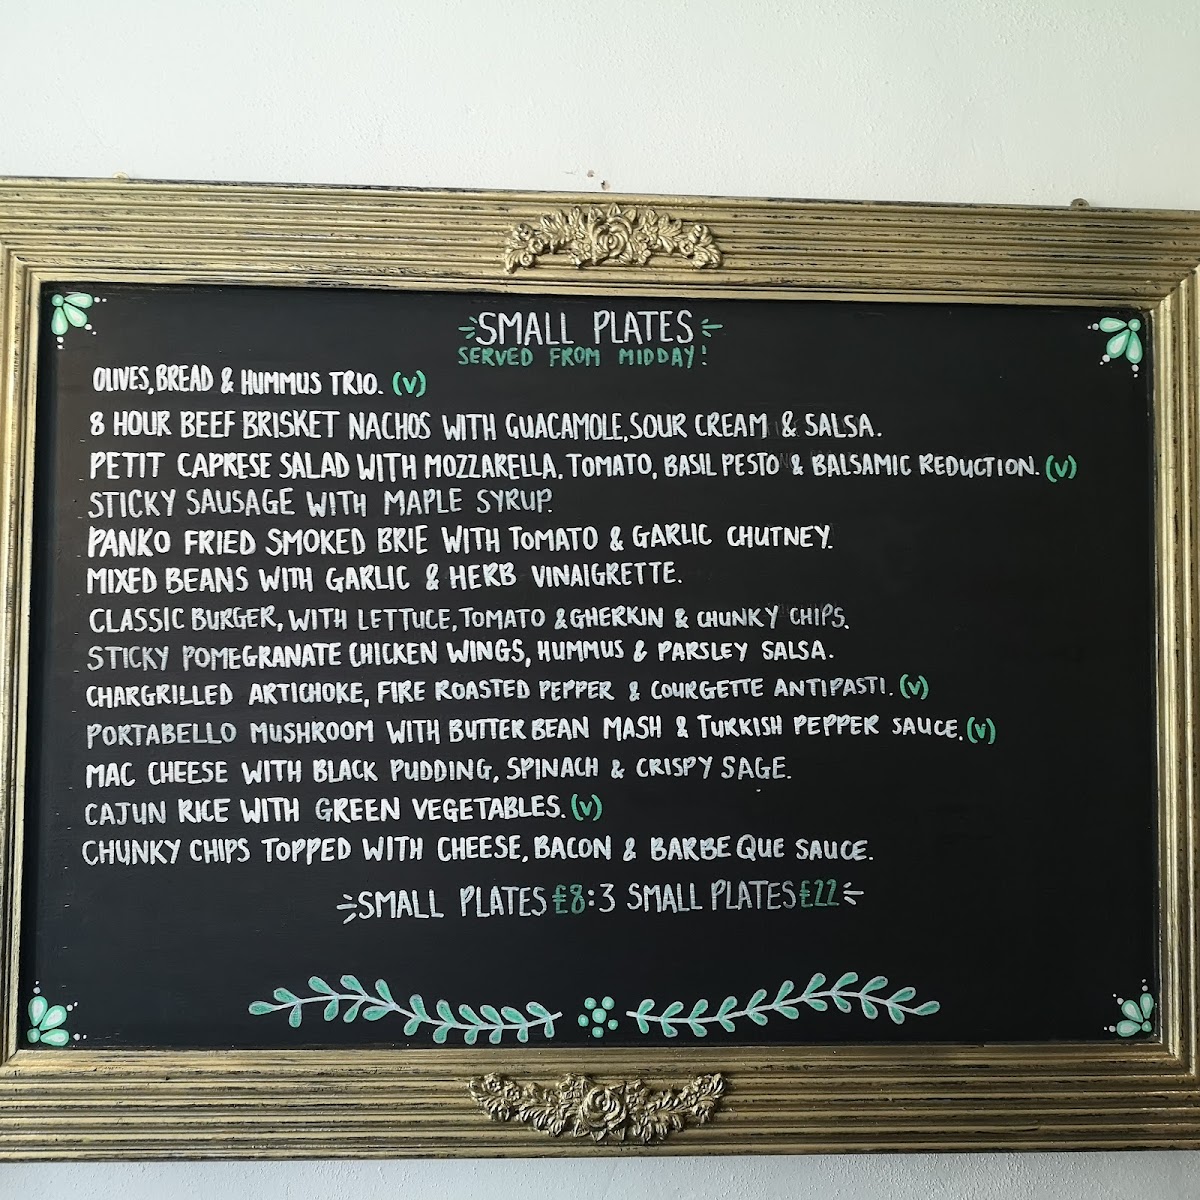 SMALL PLATES
SERVED FROM MIDDAY!
OLIVES, BREAD & HUMMUS TRIO. (V)
8 HOUR BEEF BRISKET NACHOS WITH GUACAMOLE, SOUR CREAM & SALSA.
PETIT CAPRESE SALAD WITH MOZZARELLA, TOMATO, BASIL PESTO & BALSAMIC REDUCTION. (V)
STICKY SAUSAGE WITH MAPLE SYRUP.
PANKO FRIED SMOKED BRIE WITH TOMATO & GARLIC CHUTNEY.
MIXED BEANS WITH GARLIC & HERB VINAIGRETTE.
CLASSIC BURGER, WITH LETTUCE, TOMATO & GHERKIN & CHUNKY CHIPS.
STICKY POMEGRANATE CHICKEN WINGS, HUMMUS & PARSLEY SALSA.
CHARGRILLED ARTICHOKE, FIRE ROASTED PEPPER & COURGETTE ANTIPASTI. (V)
PORTABELLO MUSHROOM WITH BUTTER BEAN MASH & TURKISH PEPPER SAUCE. (V)
MAC CHEESE WITH BLACK PUDDING, SPINACH & CRISPY SAGE.
CAJUN RICE WITH GREEN VEGETABLES. (V)
CHUNKY CHIPS TOPPED WITH CHEESE, BACON & BARBEQUE SAUCE.
SMALL PLATES £8:3 SMALL PLATES £22